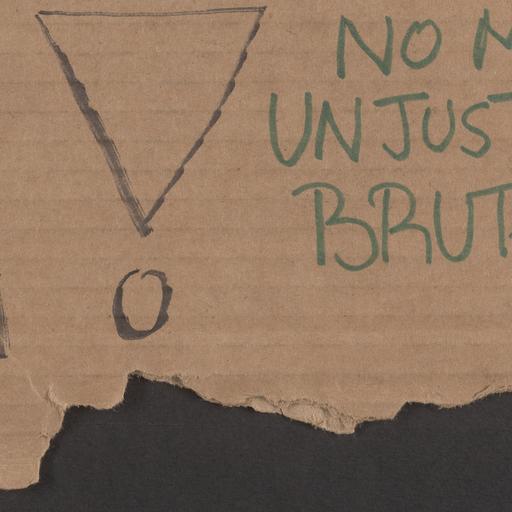 NO
UNJUST
BRUT